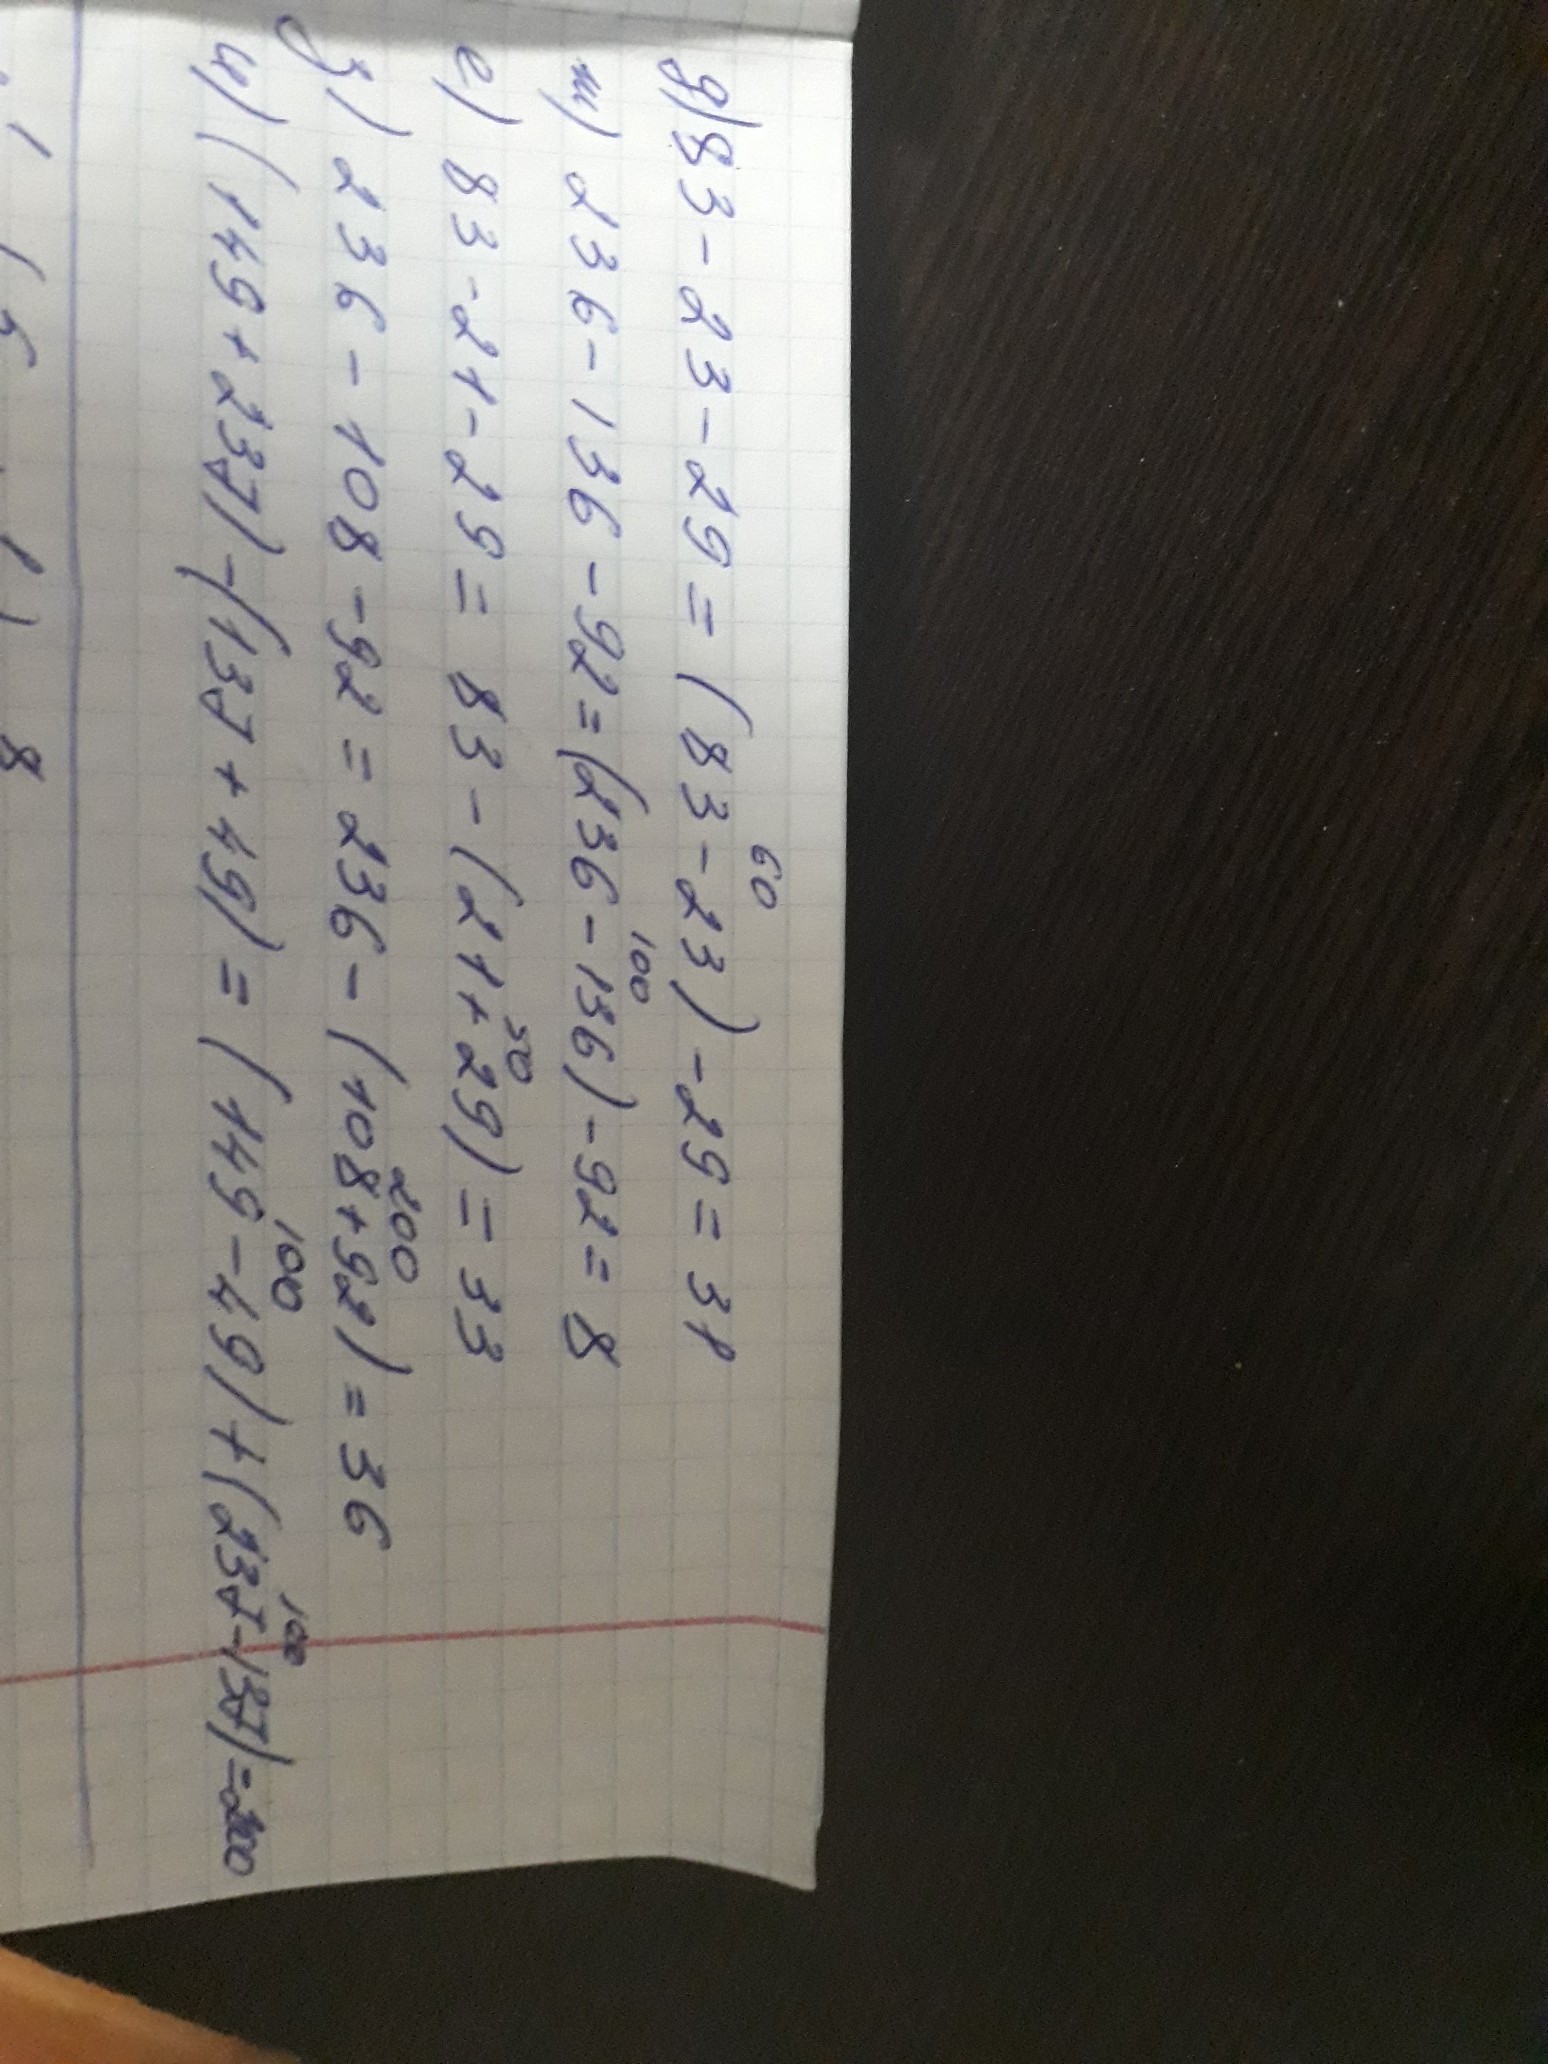 60
д) 83-23-29=(83-23)-29=31
100
ж) 236-136-92=(236-136)-92=8
50
е) 83-21-29=83-(21+29)=33
200
з) 236-108-92=236-(108+92)=36
100 100
и) (149+237)-(137+49)=(149-49)+(237-137)=200